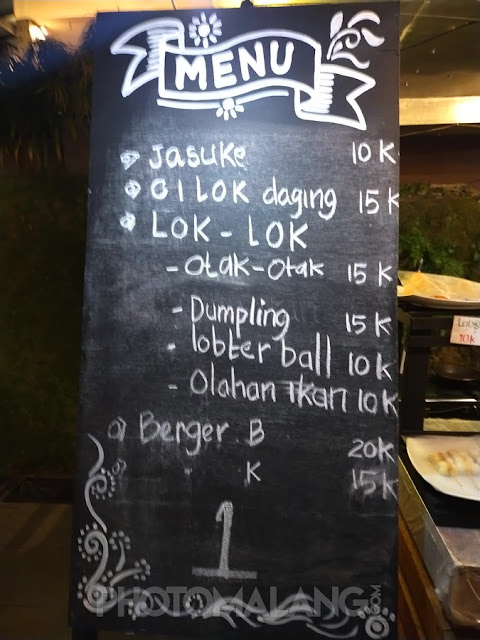 MENU
Jasuke 10K
CILOK daging 15K
LOK - LOK
- Otak-Otak 15K
- Dumpling 15K
- lobter ball 10K
- Olahan Ikan 10K
Berger B 20K
K 15K
1
10K
PHOTOMALANG.COM